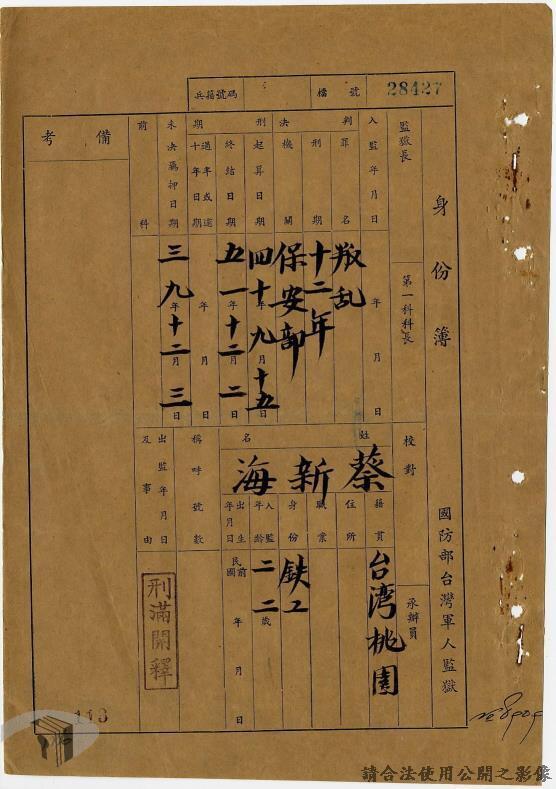 兵籍號碼
檔號 28427
身份簿
國防部台灣軍人監獄
監獄長
第一科科長
校對
承辦員
入監年月日 年月日
判決
罪名 叛乱
刑期 十二年
機關 保安部
刑期
起算日期 四十年九月十五日
終結日期 五一年十二月二日
過半或逾十年日期 年月日
未決羈押日期 三九年十二月三日
前科
備考
姓名 蔡新海
籍貫 台湾桃園
住所
職業
身份 鉄工
入監年齡 二二歲
出生年月日 民前國 年月日
稱呼號數
出監年月日及事由 刑滿開釋
113
請合法使用公開之影像